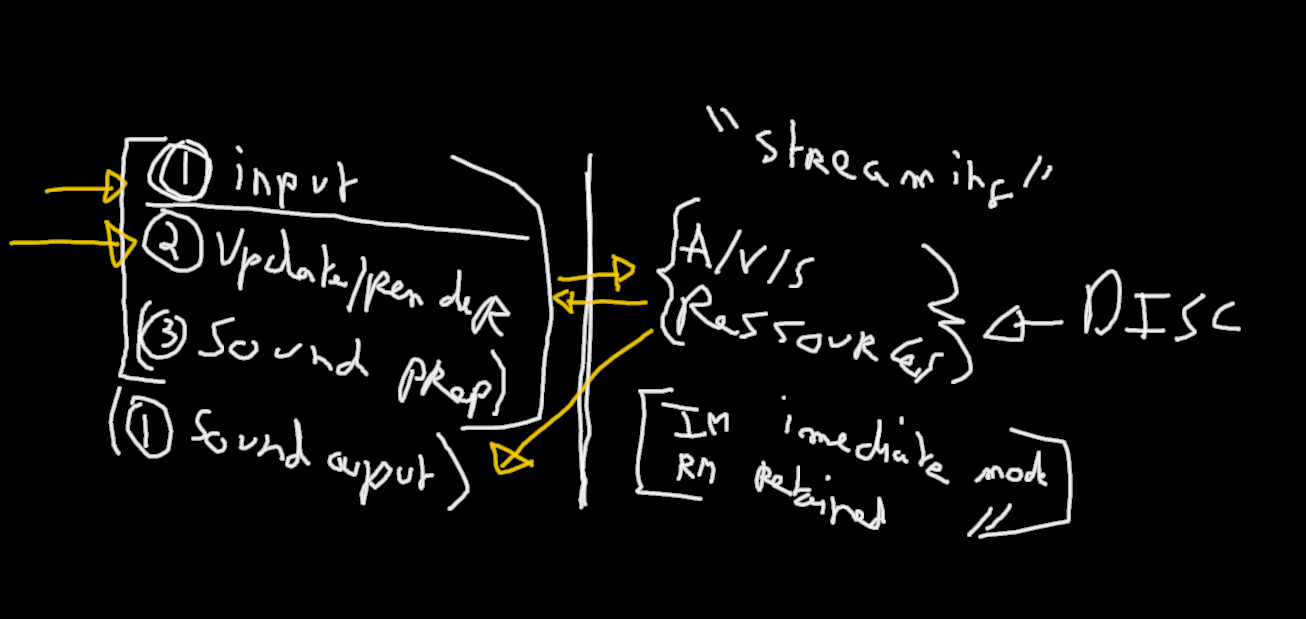 ① input
② Update/Render
(③ Sound prep)
(① Sound ouput)
"Streaming"
A/V/S
Ressources
DISC
IM imediate mode
RM Retained "